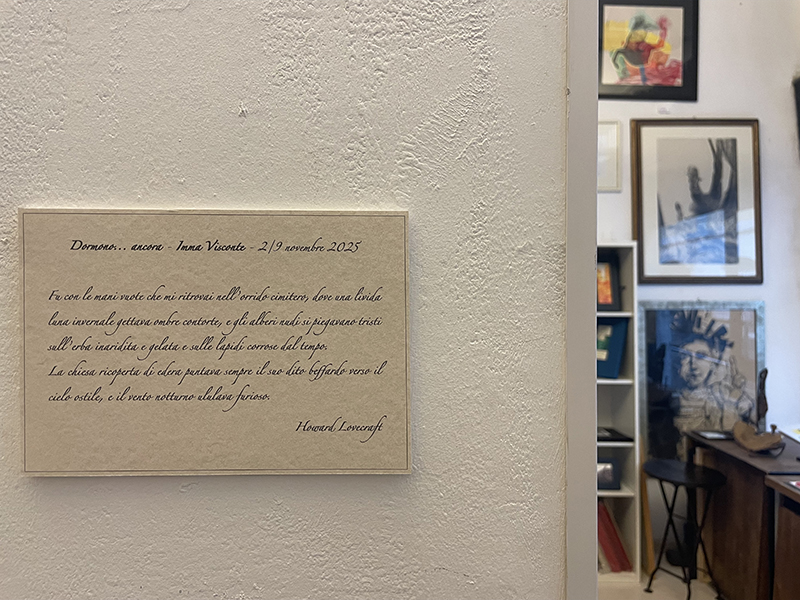 Dormono... ancora - Imma Visconte - 2/9 novembre 2025
Fu con le mani vuote che mi ritrovai nell'orrido cimitero, dove una livida
luna invernale gettava ombre contorte, e gli alberi nudi si piegavano tristi
sull'erba inaridita e gelata e sulle lapidi corrose dal tempo.
La chiesa ricoperta di edera puntava sempre il suo dito beffardo verso il
cielo ostile, e il vento notturno ululava furioso.
Howard Lovecraft